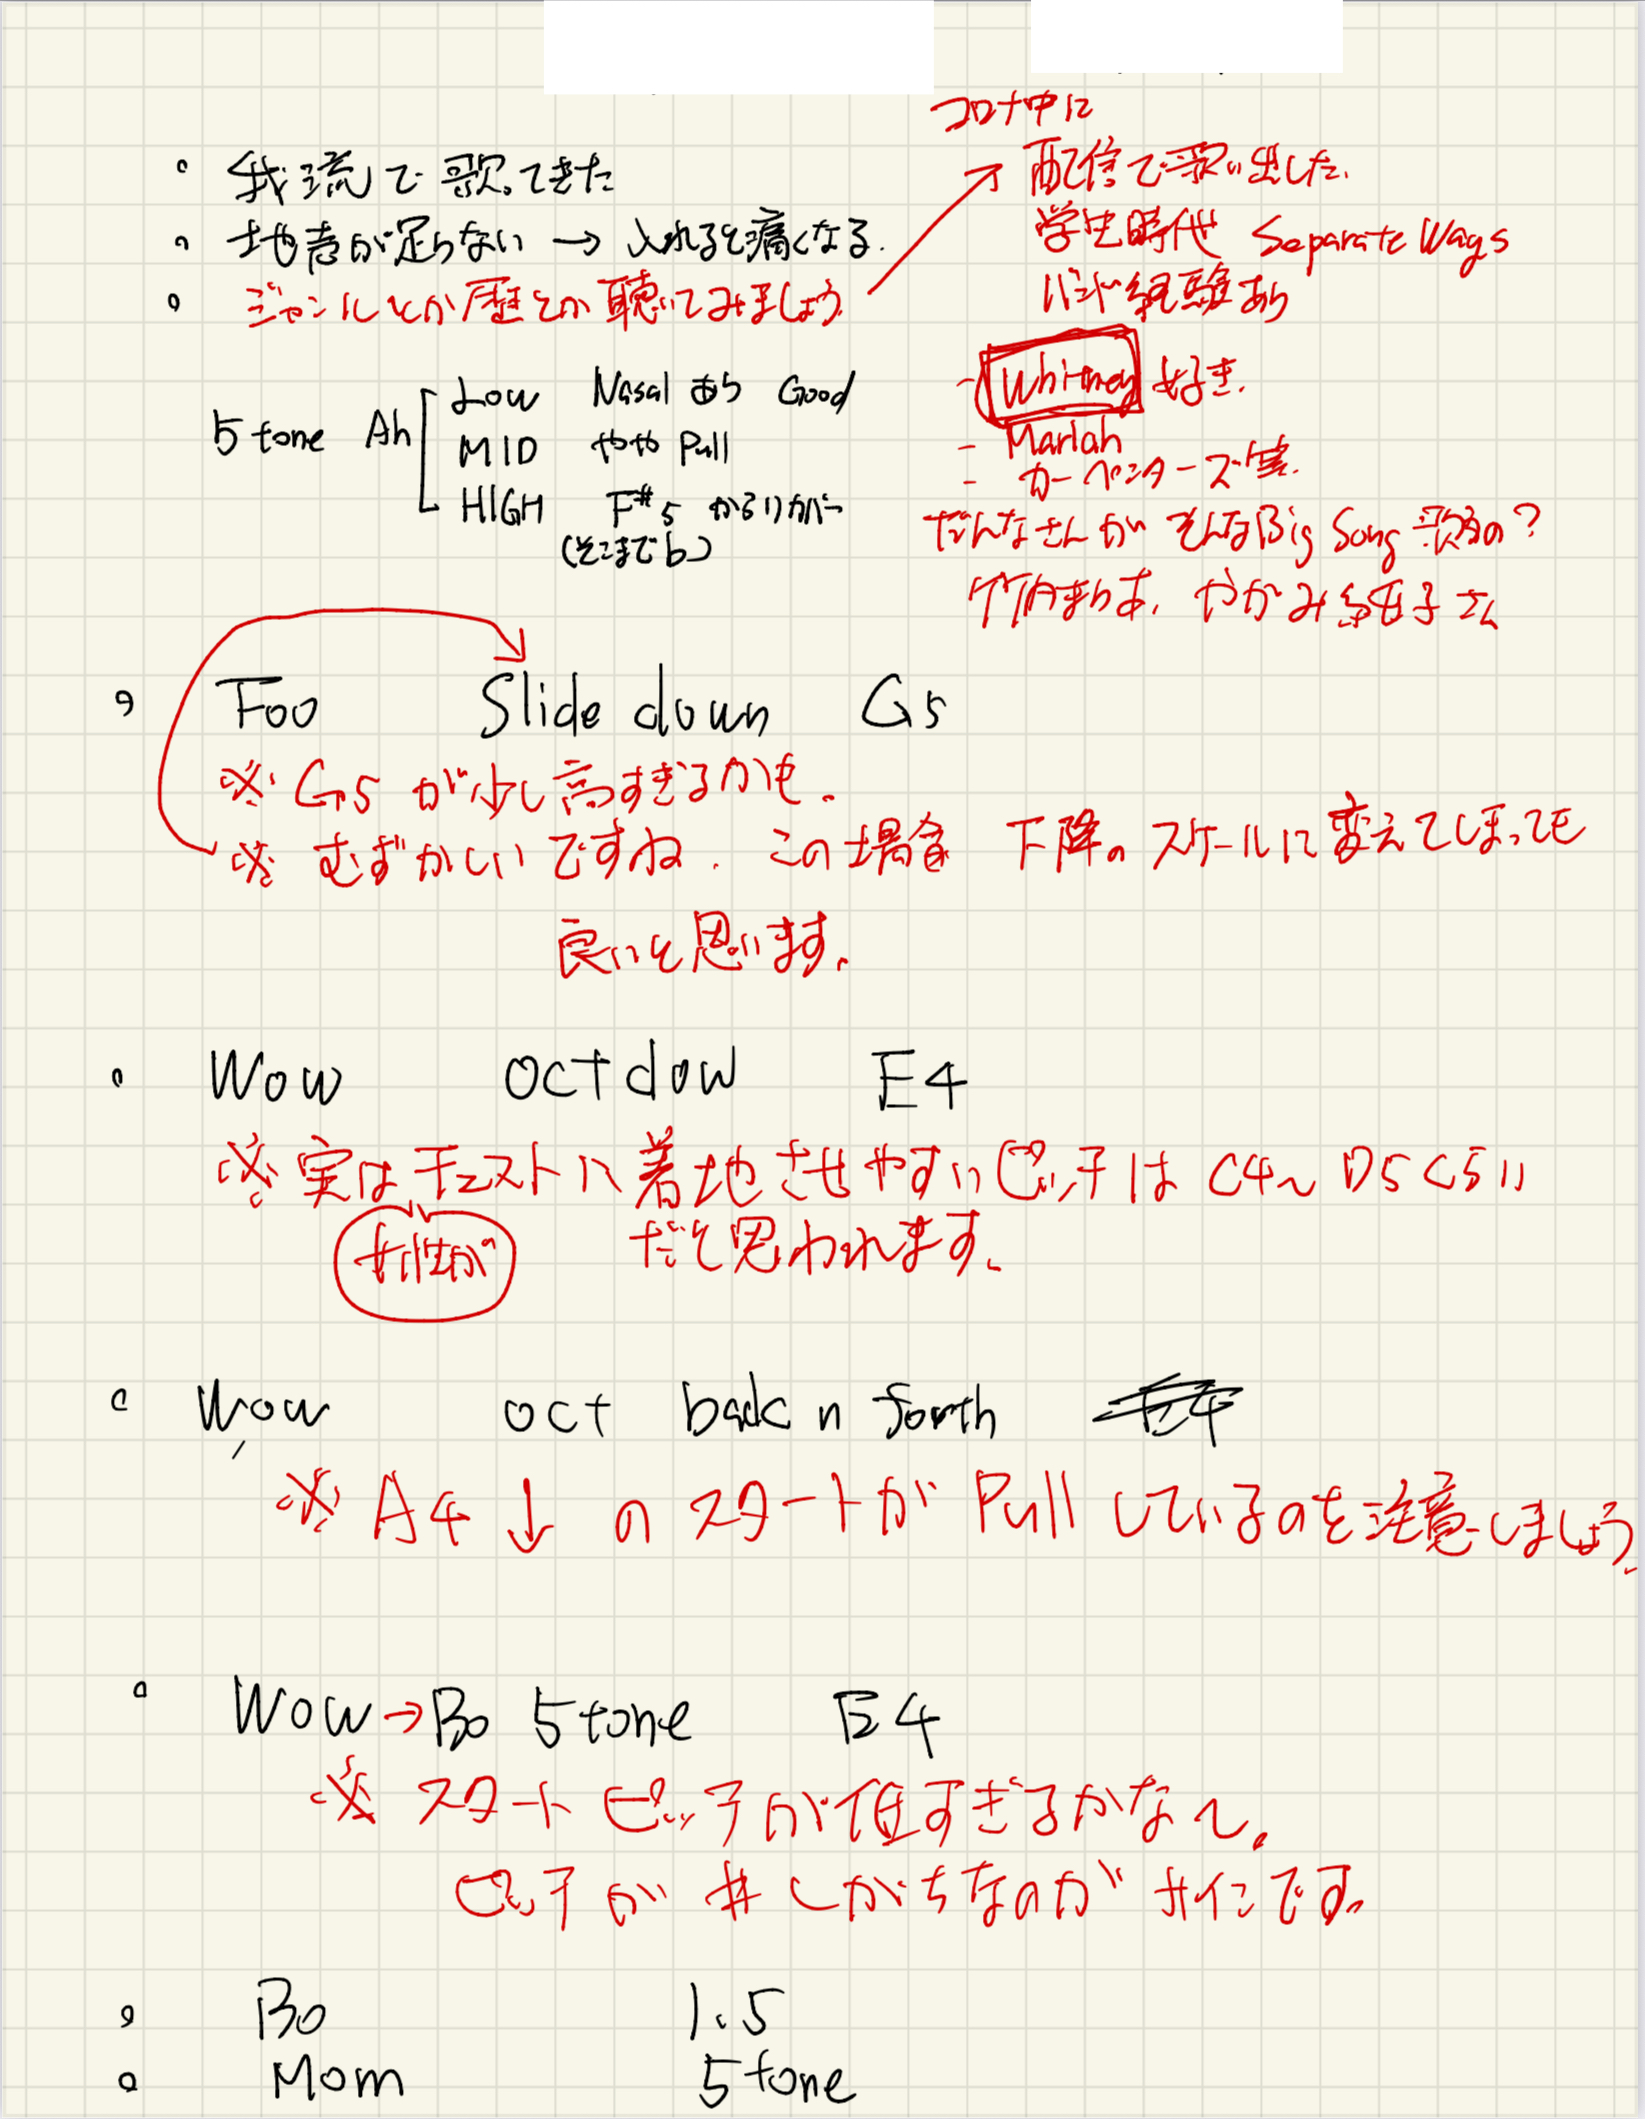 ・ 我流で歌ってきた
・ 地声が足らない → 入れると痛くなる.
・ ジャンルとか歴とか聴いてみましょう
コロナ中に
配信で歌い出した.
学生時代 Separate Ways
バンド経験あり
- Whitney 好き.
- Mariah
- カーペンターズ
だんなさんが そんなBig Song 歌うの?
竹内まりあ, やがみ純子さん
5 tone Ah
Low Nasal あり Good
MID やや Pull
HIGH F#5 から
(そこまでb)
・ Foo Slide down G5
※ G5 が少し高すぎるかも.
※ むずかしいですね. この場合 下降のスケールに変えてしまっても
良いと思います.
・ Wow oct dow E4
※ 実はチェストに着地させやすいピッチは C4~D5 C5
女性が
だと思われます.
・ Wow oct back n forth
※ A4 ↓ のスタートが Pull しているのを注意しましょう.
・ Wow → Bo 5 tone E4
※ スタートピッチが低すぎるかな~.
ピッチが # しがちなのが サインです.
・ Bo 1.5
・ Mom 5 tone